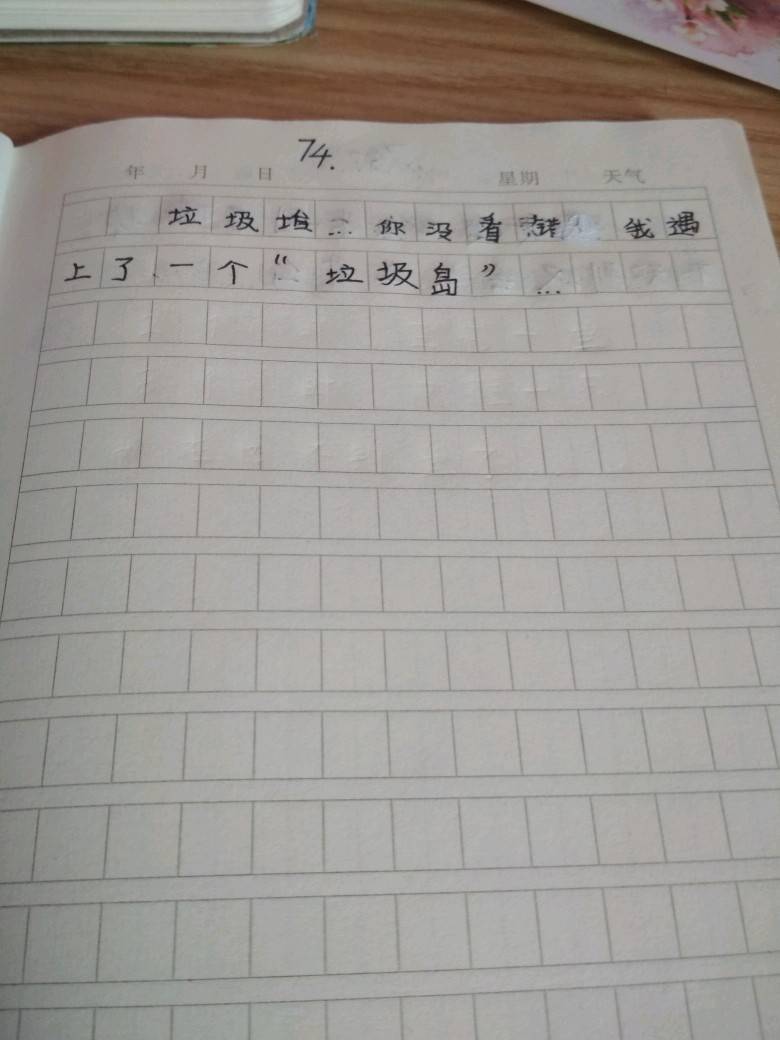 74.
年 月 日 星期 天气
垃圾堆…你没看错 我遇
上了一个“垃圾岛”…